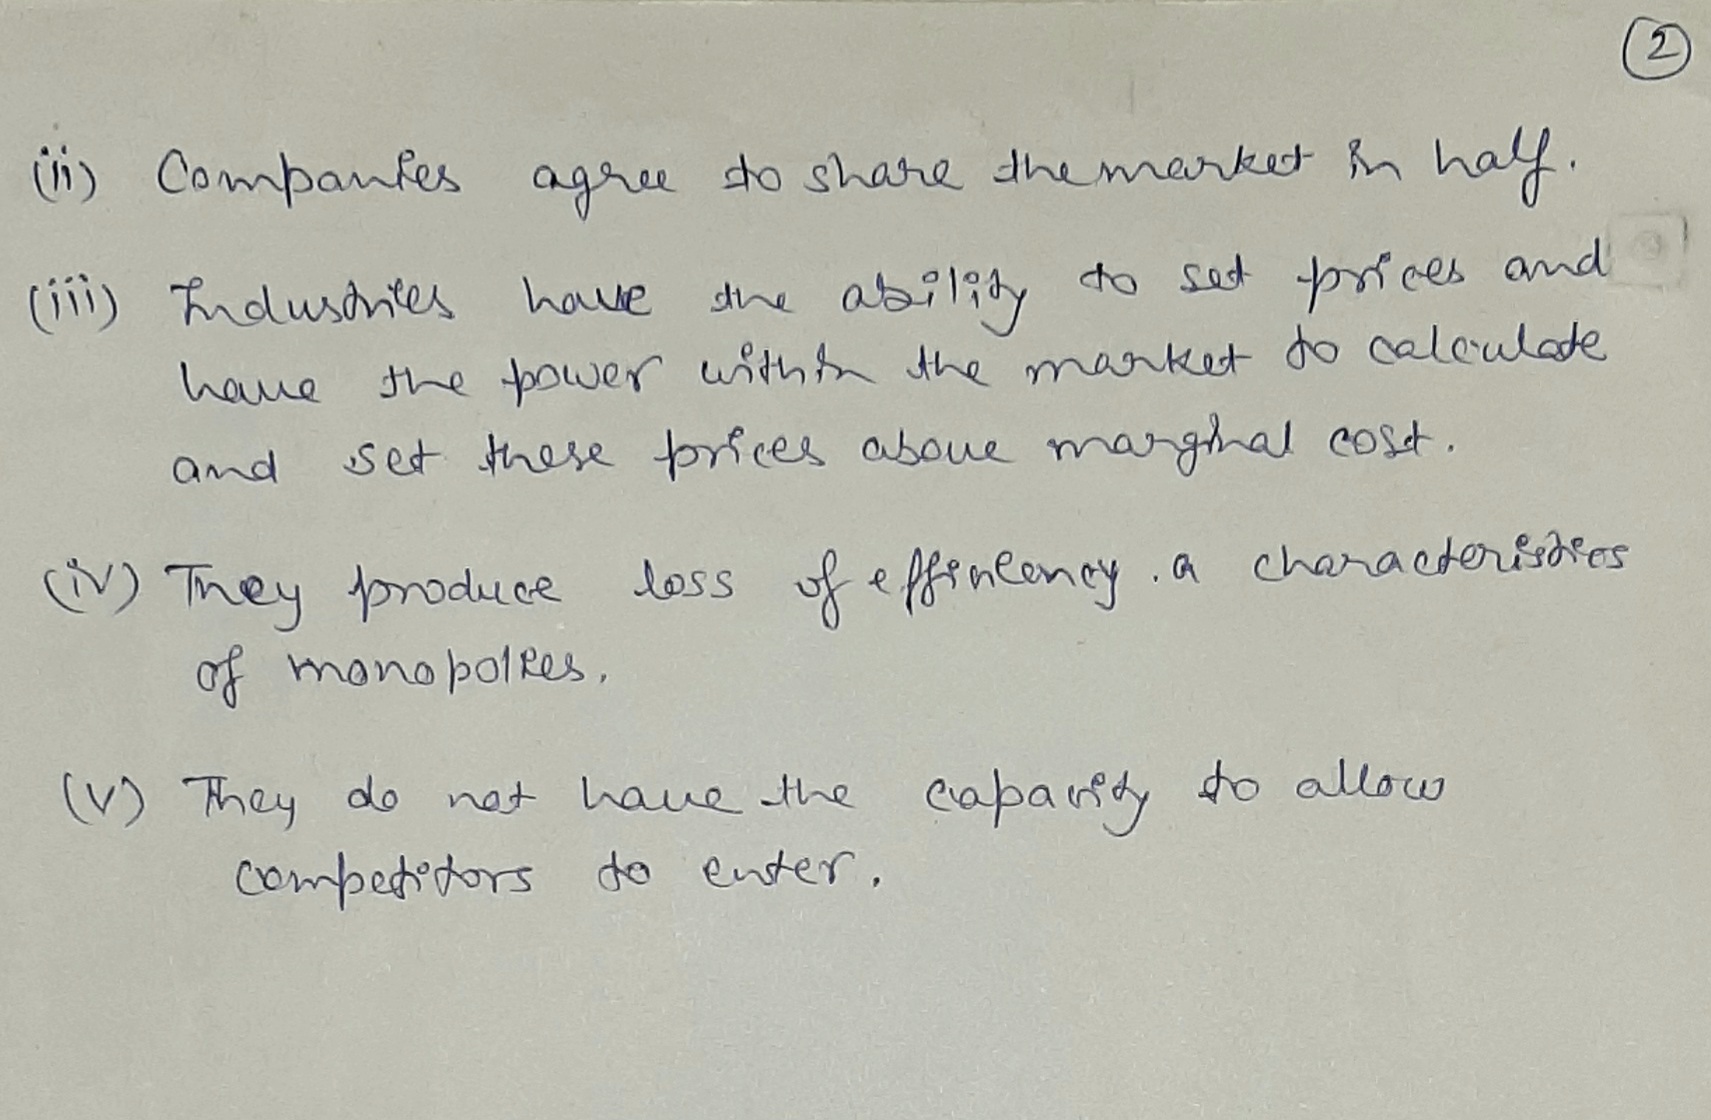 2
(ii) Companies agree to share the market in half.
(iii) Industries have the ability to set prices and
have the power within the market to calculate
and set these prices above marginal cost.
(iv) They produce loss of efficiency. a characteristics
of monopolies.
(v) They do not have the capacity to allow
competitors to enter.